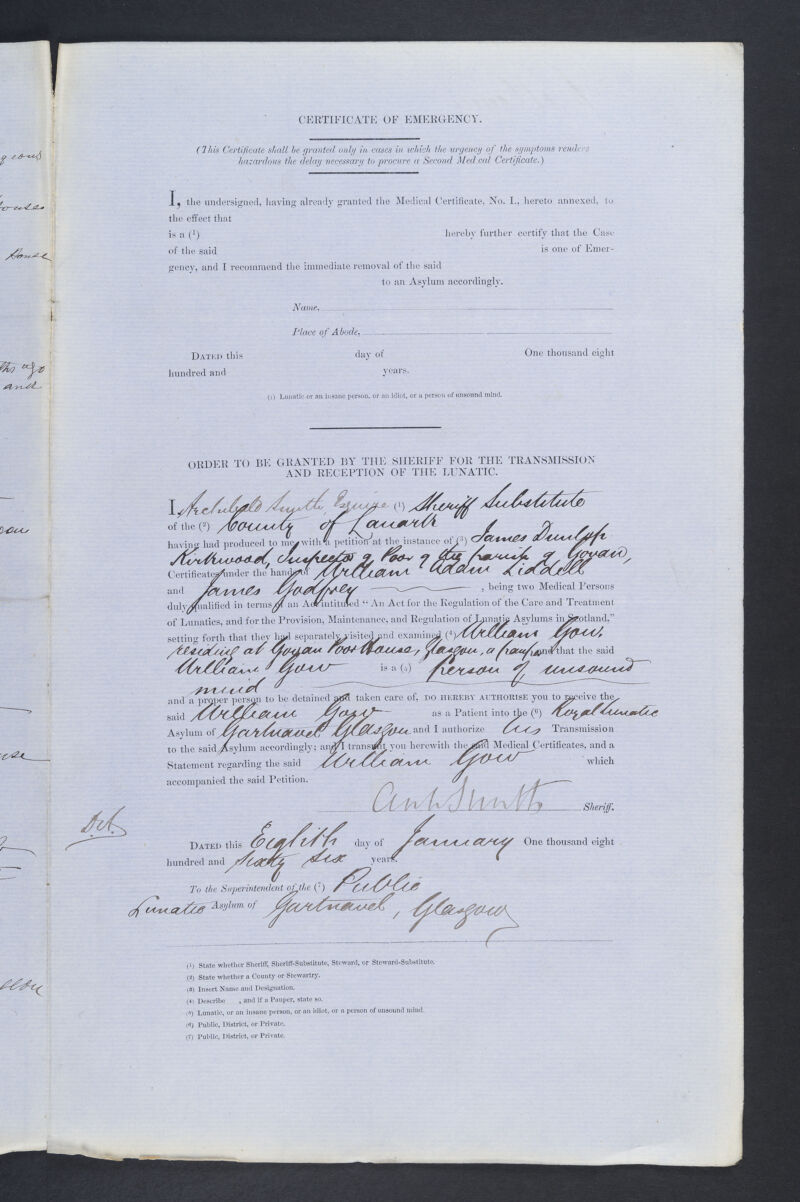 CERTIFICATE OF EMERGENCY.
(This Certificate shall be granted only in cases in which the urgency of the symptoms renders
hazardous the delay necessary to procure a Second Medical Certificate.)
I, the undersigned, having already granted the Medical Certificate, No. I., hereto annexed, to
the effect that
is a (1) hereby further certify that the Case
of the said is one of Emer-
gency, and I recommend the immediate removal of the said
to an Asylum accordingly.
Name,
Place of Abode,
DATED this day of One thousand eight
hundred and years.
(1) Lunatic or an insane person, or an idiot, or a person of unsound mind.
ORDER TO BE GRANTED BY THE SHERIFF FOR THE TRANSMISSION
AND RECEPTION OF THE LUNATIC.
I, Archibald Smith, Esquire (1) Sheriff Substitute
of the (2) County of Lanark
having had produced to me with a petition at the instance of (3) James Dunlop
Kirkwood, Inspector of Poor of the parish of Govan,
Certificates under the hands of William Adam Liddell
and James Godfrey, being two Medical Persons
duly qualified in terms of an Act intituled "An Act for the Regulation of the Care and Treatment
of Lunatics, and for the Provision, Maintenance, and Regulation of Lunatic Asylums in Scotland,"
setting forth that they had separately visited and examined (4) William Gow,
residing at Govan Poor House, Glasgow, a pauper and that the said
William Gow is a (5) person of unsound
mind
and a proper person to be detained and taken care of, DO HEREBY AUTHORISE you to receive the
said William Gow as a Patient into the (6) Royal Lunatic
Asylum of Gartnavel Glasgow and I authorize his Transmission
to the said Asylum accordingly; and I transmit you herewith the said Medical Certificates, and a
Statement regarding the said William Gow which
accompanied the said Petition.
Arch Smith Sheriff.
DATED this Eighth day of January One thousand eight
hundred and sixty six years.
To the Superintendent of the (7) Public
Lunatic Asylum of Gartnavel, Glasgow
(1) State whether Sheriff, Sheriff-Substitute, Steward, or Steward-Substitute.
(2) State whether a County or Stewartry.
(3) Insert Name and Designation.
(4) Describe , and if a Pauper, state so.
(5) Lunatic, or an insane person, or an idiot, or a person of unsound mind.
(6) Public, District, or Private.
(7) Public, District, or Private.